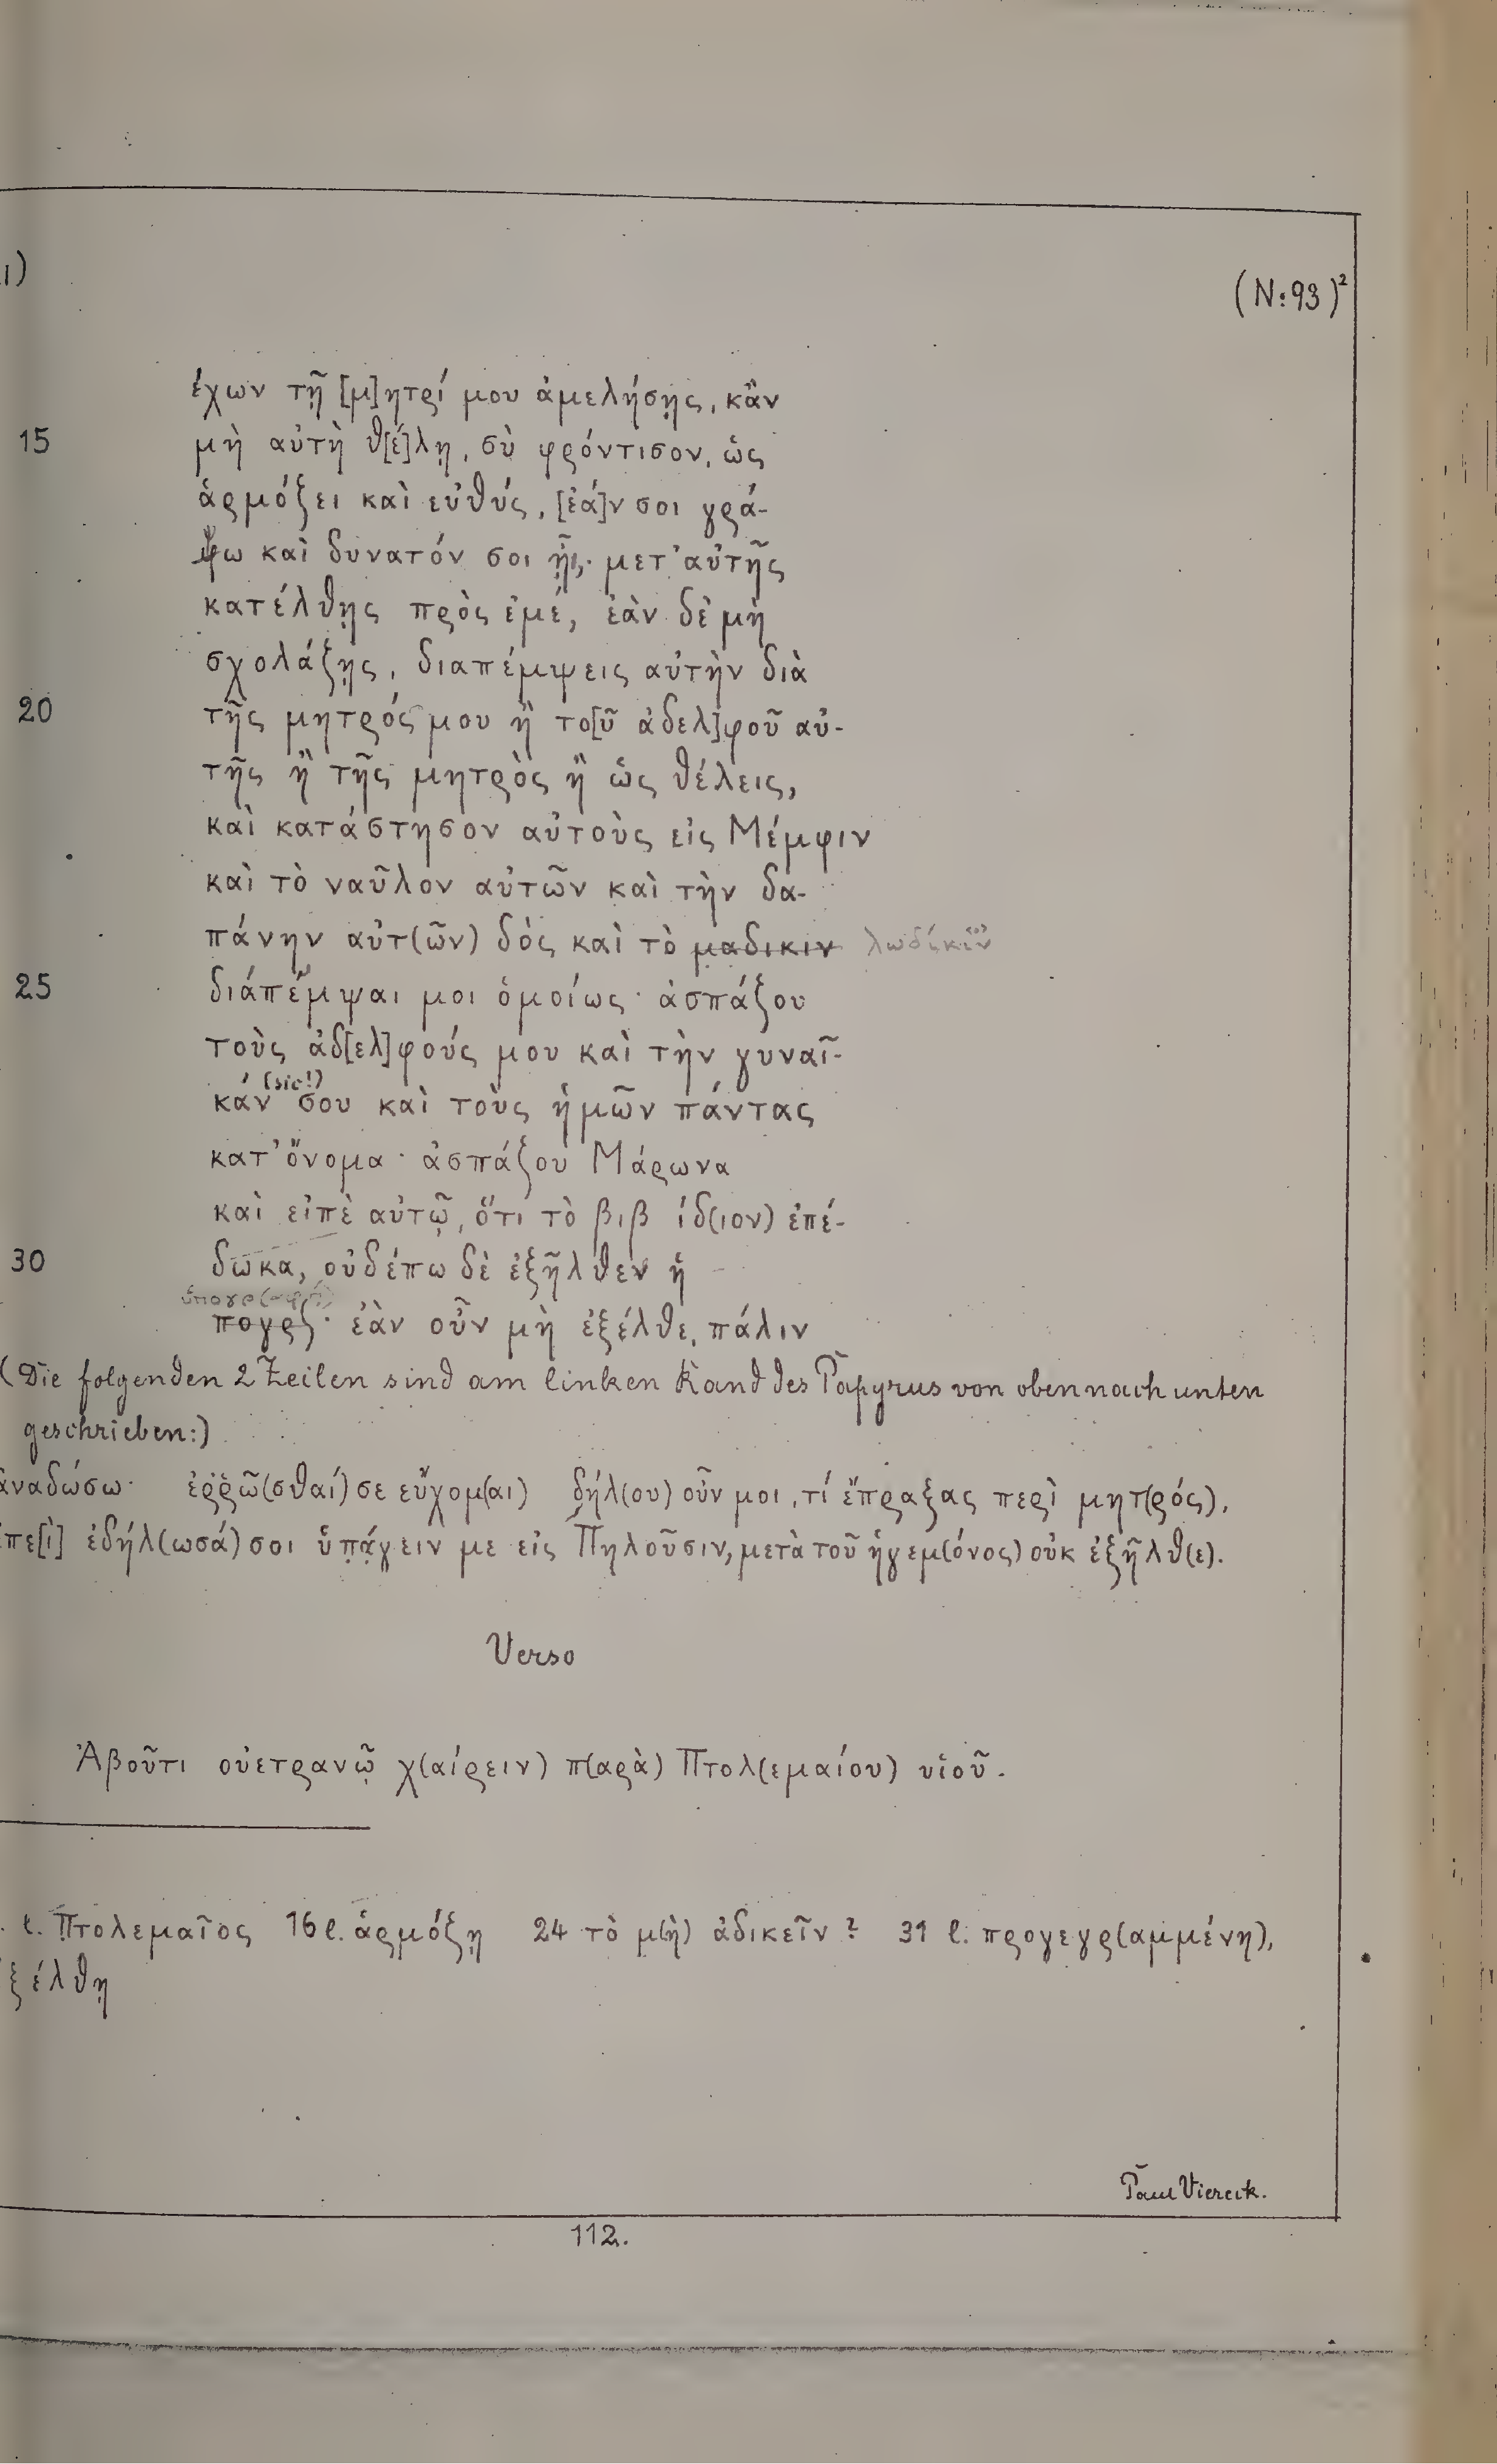 1)
(N:93)²
ἔχων τῇ [μ]ητρί μου ἀμελήσῃς, κἂν
15 μὴ αὐτὴ θ[έ]λῃ, σὺ φρόντισον, ὡς
ἁρμόζει καὶ εὐθύς, [ἐά]ν σοι γρά-
ψω καὶ δυνατόν σοι ᾖ, μετ' αὐτῆς
κατέλθῃς πρὸς ἐμέ, ἐὰν δὲ μὴ
σχολάζῃς, διαπέμψεις αὐτὴν διὰ
20 τῆς μητρός μου ἢ το[ῦ ἀδελ]φοῦ αὐ-
τῆς ἢ τῆς μητρὸς ἢ ὡς θέλεις,
καὶ κατάστησον αὐτοὺς εἰς Μέμφιν
καὶ τὸ ναῦλον αὐτῶν καὶ τὴν δα-
πάνην αὐτ(ῶν) δὸς καὶ τὸ μαδικιν λωδίκιν
25 διάπεμψαι μοι ὁμοίως· ἀσπάζου
τοὺς ἀδ[ελ]φούς μου καὶ τὴν γυναῖ-
(sic!)
κάν σου καὶ τοὺς ἡμῶν πάντας
κατ' ὄνομα· ἀσπάζου Μάρωνα
καὶ εἰπὲ αὐτῷ, ὅτι τὸ βιβ ίδ(ιον) ἐπέ-
30 δωκα, οὐδέπω δὲ ἐξῆλθεν ἡ
ὑπογρ(αφή)
πογρ· ἐὰν οὖν μὴ ἐξέλθε, πάλιν
(Die folgenden 2 Zeilen sind am linken Rand des Papyrus von oben nach unten
geschrieben:)
ἀναδώσω· ἐρῥῶ(σθαί) σε εὔχομ(αι) δήλ(ου) οὖν μοι, τί ἔπραξας περὶ μητ(ρός),
ἐπε[ὶ] ἐδήλ(ωσά) σοι ὑπάγειν με εἰς Πηλοῦσιν, μετὰ τοῦ ἡγεμ(όνος) οὐκ ἐξῆλθ(ε).
Verso
Ἀβοῦτι οὐετρανῷ χ(αίρειν) π(αρὰ) Πτολ(εμαίου) υἱοῦ.
l. Πτολεμαῖος 16 l. ἁρμόζῃ 24 τὸ μ(ὴ) ἀδικεῖν? 31 l. προγεγρ(αμμένη),
ξέλθῃ
Paul Viereck.
112.